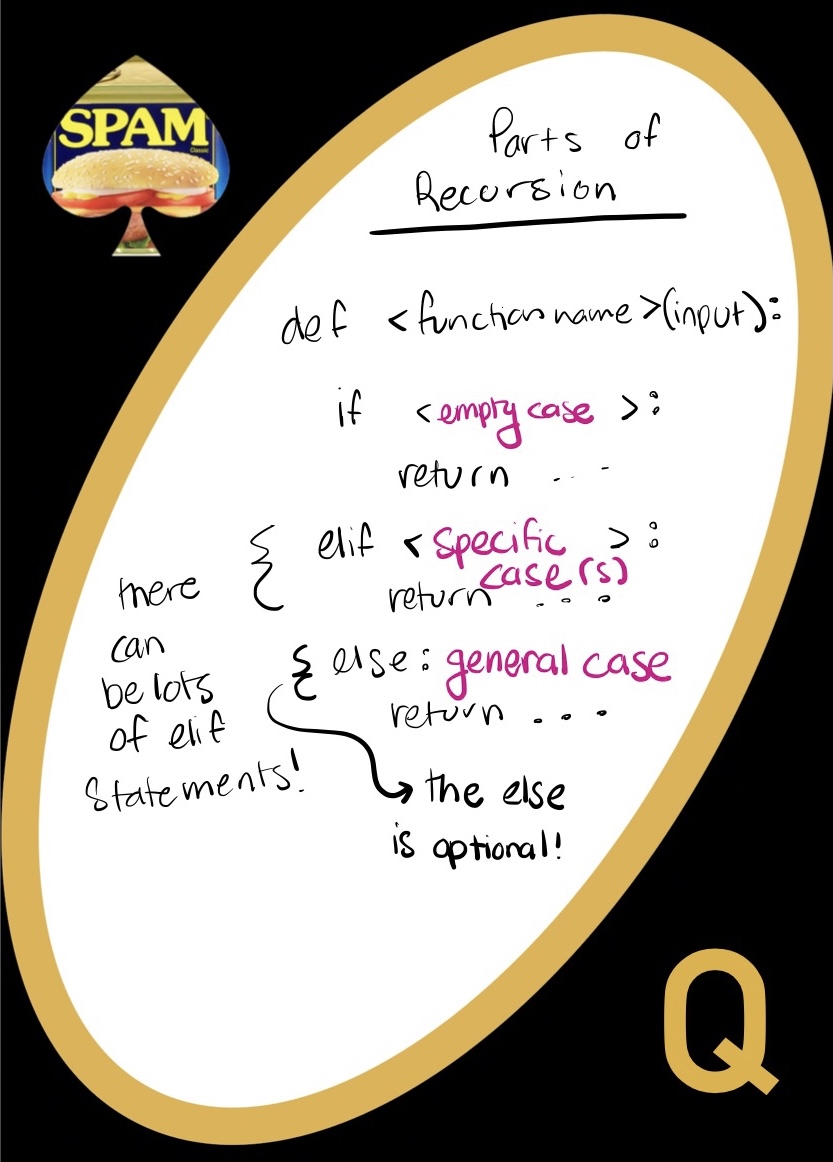 SPAM
Classic
Parts of
Recursion
def <function name>(input):
if <empty case>:
return ...
{ elif <specific case(s)>:
return ...
there
can
be lots
of elif
statements!
{ else: general case
return ...
the else
is optional!
Q